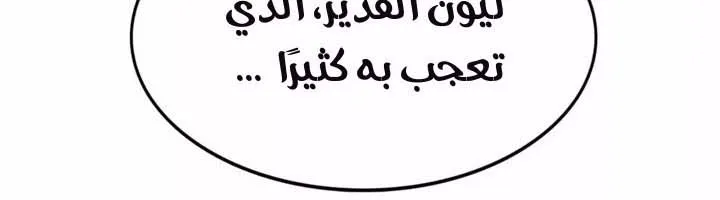 ليون القدير، الذي
تعجب به كثيرًا ...